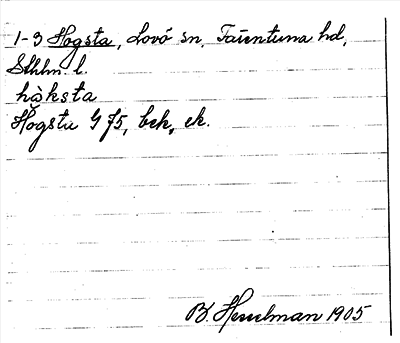 1-3 Hogsta, Lovö sn, Färentuna hd,
Sthlm. l.
hò̀ksta
Hogsta G 75, bek, ek.
B. Hesselman 1905